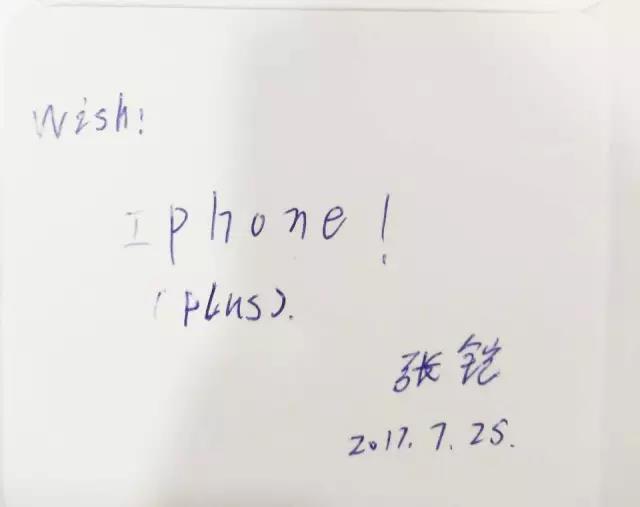 Wish!
Iphone!
(plus).
张铠
2017.7.25.